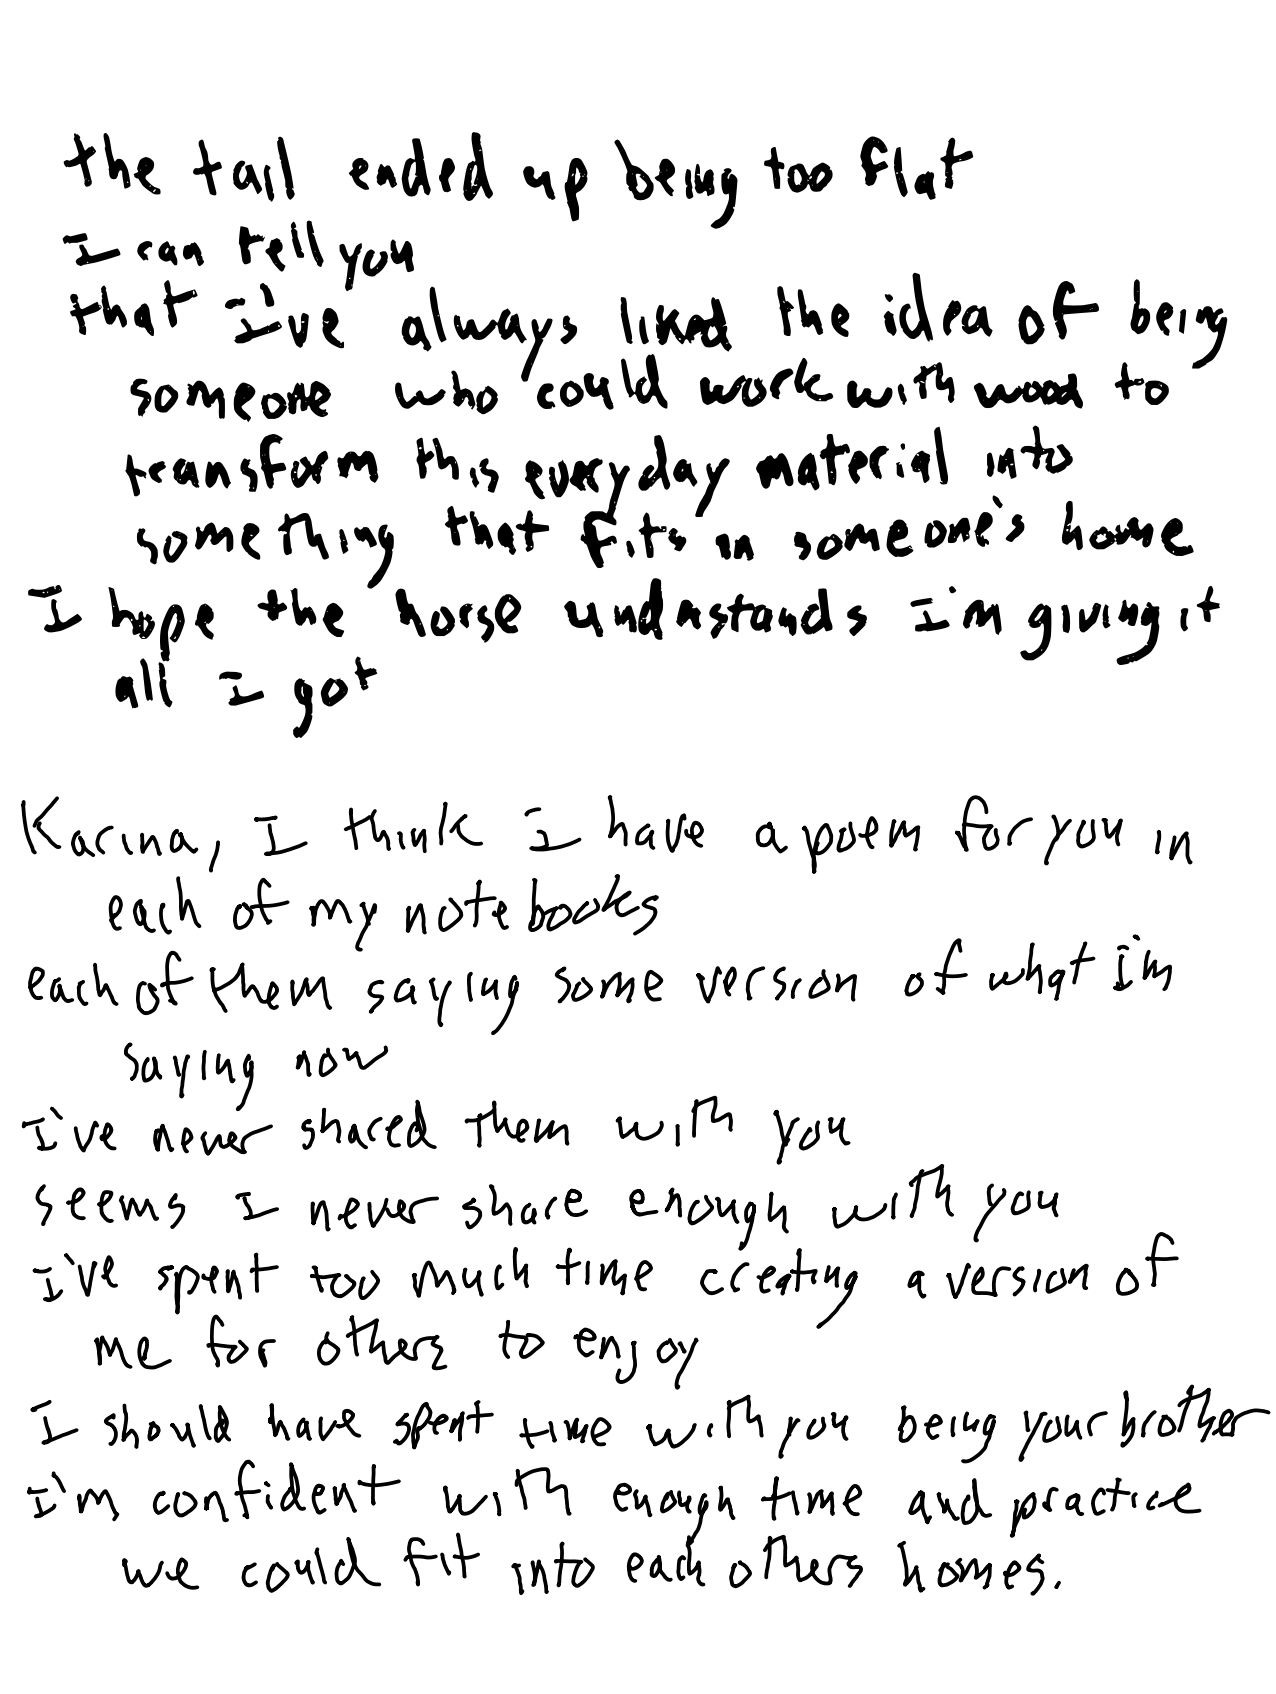 the tail ended up being too flat
I can tell you
that I've always liked the idea of being
someone who could work with wood to
transform this everyday material into
something that fits in someone's home
I hope the horse understands I'm giving it
all I got
Karina, I think I have a poem for you in
each of my notebooks
each of them saying some version of what I'm
saying now
I've never shared them with you
seems I never share enough with you
I've spent too much time creating a version of
me for others to enjoy
I should have spent time with you being your brother
I'm confident with enough time and practice
we could fit into each others homes.